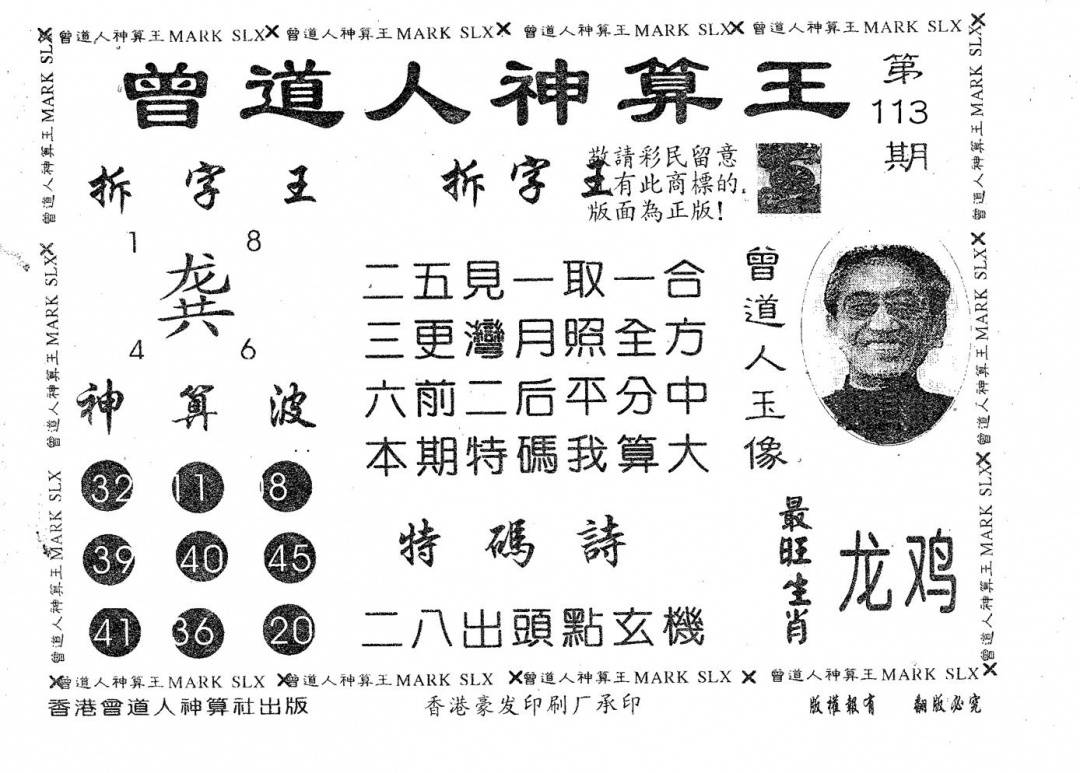 曾道人神算王MARK SLX 曾道人神算王MARK SLX 曾道人神算王MARK SLX 曾道人神算王MARK SLX
曾道人神算王
第
113
期
拆字王
拆字王
敬請彩民留意
有此商標的
版面為正版!
1 8
龚
4 6
神算波
32 11 8
39 40 45
41 36 20
二五見一取一合
三更灣月照全方
六前二后平分中
本期特碼我算大
特碼詩
二八出頭點玄機
曾道人玉像
最旺生肖
龙鸡
曾道人神算王MARK SLX
曾道人神算王MARK SLX
曾道人神算王MARK SLX
曾道人神算王MARK SLX
曾道人神算王MARK SLX
曾道人神算王MARK SLX
曾道人神算王MARK SLX 曾道人神算王MARK SLX 曾道人神算王MARK SLX 曾道人神算王MARK SLX
香港曾道人神算社出版
香港豪发印刷厂承印
版權報有 翻版必究